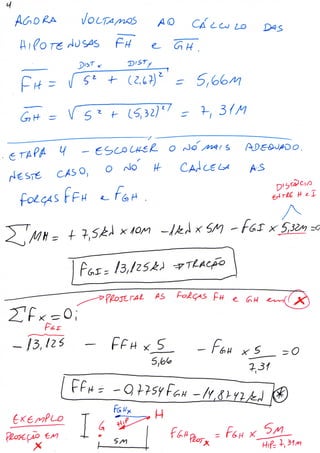 4
AGORA VOLTAMOS AO CÁLCULO DAS
HIPOTENUSAS FH e GH.
DIST x DIST y
FH = √ 5² + (2,67)² = 5,66M
GH = √ 5² + (5,32)² = 7,31M
. ETAPA 4 – ESCOLHER O NÓ MAIS ADEQUADO.
NESTE CASO, O NÓ H CANCELA AS
FORÇAS FFH e FGH.
DISTÂNCIA
ENTRE H e I
∑MH = + 7,5kN x 10M – 1kN x 5M – FGI x 5,32M = 0
FGI = 13,125kN ⇒ TRAÇÃO
PROJETAR AS FORÇAS FH e GH em X
∑Fx = 0;
FGI
– 13,125 – FFH x 5/5,66 – FGH x 5/7,31 = 0
FFH = – 0,7754 FGH – 14,8472kN *
EXEMPLO
PROJEÇÃO EM
X
FGHx H
G HIP
5M
FGH PROJ x = FGH x 5M / HIP = 7,31M